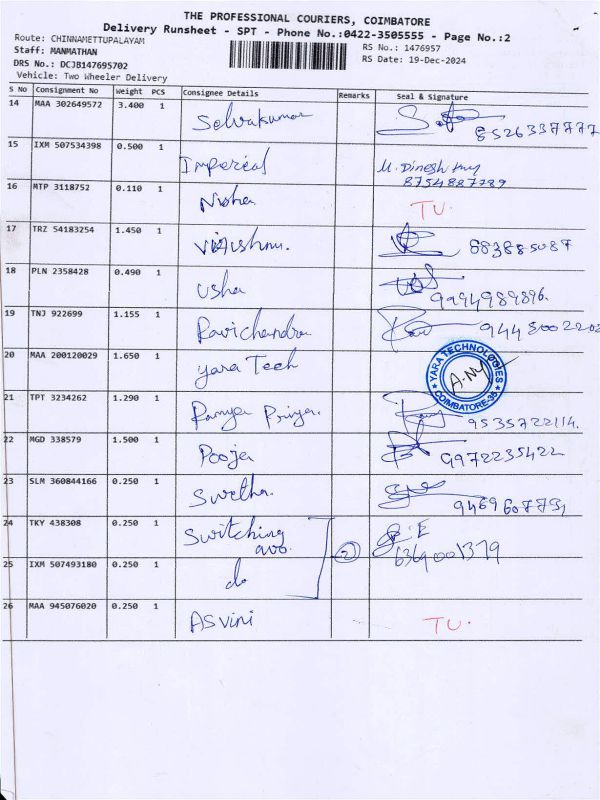 THE PROFESSIONAL COURIERS, COIMBATORE
Delivery Runsheet - SPT - Phone No.:0422-3505555 - Page No.:2
Route: CHINNAMETTUPALAYAM
RS No.: 1476957
Staff: MANMATHAN
RS Date: 19-Dec-2024
DRS No.: DCJB147695702
Vehicle: Two Wheeler Delivery
S No Consignment No Weight PCS Consignee Details Remarks Seal & Signature
14 MAA 302649572 3.400 1 Selvakumar 8526337777
15 IXM 507534398 0.500 1 Imperial M. Dinesh 8754887789
16 MTP 3118752 0.110 1 Nisha TU.
17 TRZ 54183254 1.450 1 Vishnu. 883885087
18 PLN 2358428 0.490 1 Usha 9994989896.
19 TNJ 922699 1.155 1 Ravichandra
20 MAA 200120029 1.650 1 Yara Tech YARA TECHNOLOGIES COIMBATORE-35
21 TPT 3234262 1.290 1 Ramya Priya. 9535722114.
22 MGD 338579 1.500 1 Pooja 9972235422
23 SLM 360844166 0.250 1 Swetha.
24 TKY 438308 0.250 1 Switching avo. 2 6369001379
25 IXM 507493180 0.250 1 do
26 MAA 945076020 0.250 1 Asvini TU.